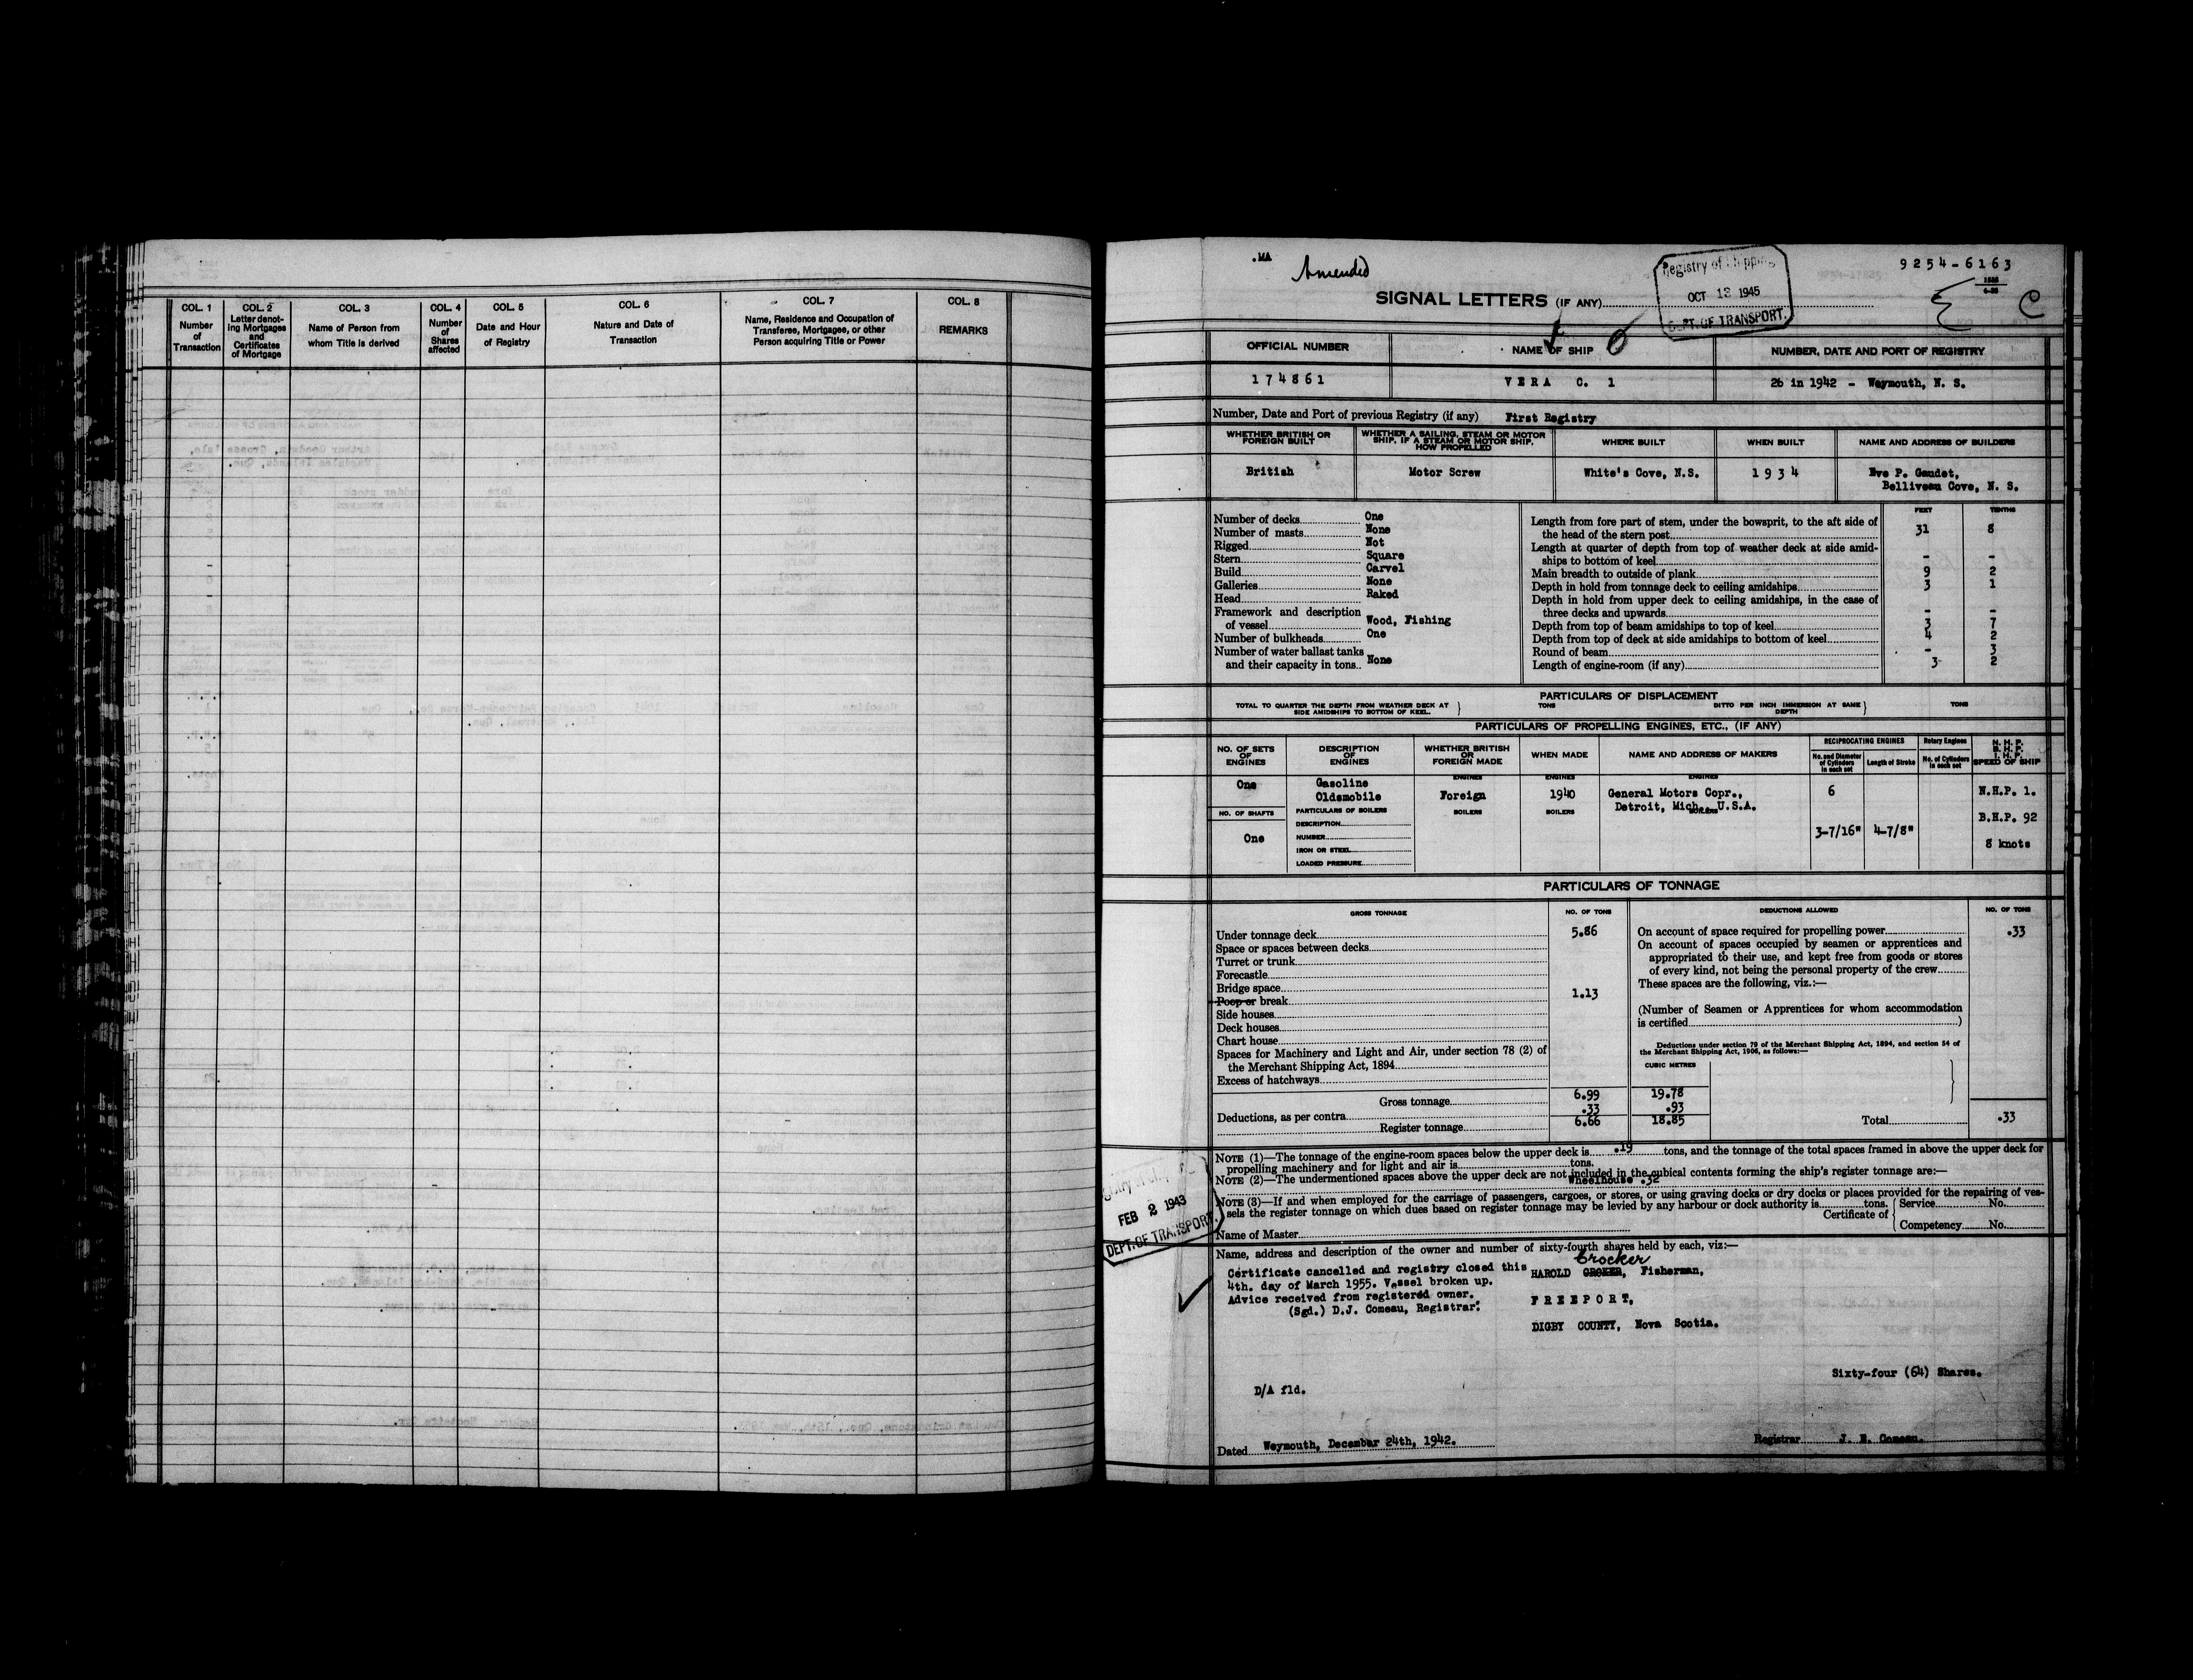 COL. 1
Number
of
Transaction
COL. 2
Letter denot-
ing Mortgages
and
Certificates
of Mortgage
COL. 3
Name of Person from
whom Title is derived
COL. 4
Number
of
Shares
affected
COL. 5
Date and Hour
of Registry
COL. 6
Nature and Date of
Transaction
COL. 7
Name, Residence and Occupation of
Transferee, Mortgagee, or other
Person acquiring Title or Power
COL. 8
REMARKS
.MA
Amended
9254-6163
SIGNAL LETTERS (IF ANY)
Registry of Shipping
OCT 13 1945
DEPT. OF TRANSPORT.
C
OFFICIAL NUMBER
NAME OF SHIP
NUMBER, DATE AND PORT OF REGISTRY
174861
VERA C. 1
26 in 1942 - Weymouth, N. S.
Number, Date and Port of previous Registry (if any) First Registry
WHETHER BRITISH OR
FOREIGN BUILT
WHETHER A SAILING, STEAM OR MOTOR
SHIP, IF A STEAM OR MOTOR SHIP,
HOW PROPELLED
WHERE BUILT
WHEN BUILT
NAME AND ADDRESS OF BUILDERS
British
Motor Screw
White's Cove, N.S.
1934
Eve P. Gaudet,
Belliveau Cove, N. S.
Number of decks One
Number of masts None
Rigged Not
Stern Square
Build Carvel
Galleries None
Head Raked
Framework and description
of vessel Wood, Fishing
Number of bulkheads One
Number of water ballast tanks
and their capacity in tons None
FEET TENTHS
Length from fore part of stem, under the bowsprit, to the aft side of
the head of the stern post 31 8
Length at quarter of depth from top of weather deck at side amid-
ships to bottom of keel - -
Main breadth to outside of plank 9 2
Depth in hold from tonnage deck to ceiling amidships 3 1
Depth in hold from upper deck to ceiling amidships, in the case of
three decks and upwards - -
Depth from top of beam amidships to top of keel 3 7
Depth from top of deck at side amidships to bottom of keel 4 2
Round of beam - 3
Length of engine-room (if any) 3 2
PARTICULARS OF DISPLACEMENT
TOTAL TO QUARTER THE DEPTH FROM WEATHER DECK AT
SIDE AMIDSHIPS TO BOTTOM OF KEEL.
TONS
DITTO PER INCH IMMERSION AT SAME
DEPTH
TONS
PARTICULARS OF PROPELLING ENGINES, ETC., (IF ANY)
NO. OF SETS
OF
ENGINES
DESCRIPTION
OF
ENGINES
WHETHER BRITISH
OR
FOREIGN MADE
WHEN MADE
NAME AND ADDRESS OF MAKERS
RECIPROCATING ENGINES
No. and Diameter
of Cylinders
in each set
Length of Stroke
Rotary Engines
No. of Cylinders
in each set
N. H. P.
B. H. P.
I. H. P.
SPEED OF SHIP
ENGINES ENGINES ENGINES
One
Gasoline
Oldsmobile
Foreign
1940
General Motors Copr.,
Detroit, Mich., U.S.A.
6
N.H.P. 1.
NO. OF SHAFTS
PARTICULARS OF BOILERS
BOILERS BOILERS BOILERS
B.H.P. 92
One
DESCRIPTION
NUMBER
IRON OR STEEL
LOADED PRESSURE
3-7/16" 4-7/8"
8 knots
PARTICULARS OF TONNAGE
GROSS TONNAGE
NO. OF TONS
DEDUCTIONS ALLOWED
NO. OF TONS
Under tonnage deck 5.86
Space or spaces between decks
Turret or trunk
Forecastle
Bridge space
Poop or break 1.13
Side houses
Deck houses
Chart house
Spaces for Machinery and Light and Air, under section 78 (2) of
the Merchant Shipping Act, 1894
Excess of hatchways
Gross tonnage 6.99 19.78
Deductions, as per contra .33 .93
Register tonnage 6.66 18.85
On account of space required for propelling power .33
On account of spaces occupied by seamen or apprentices and
appropriated to their use, and kept free from goods or stores
of every kind, not being the personal property of the crew
These spaces are the following, viz.:—
(Number of Seamen or Apprentices for whom accommodation
is certified )
Deductions under section 79 of the Merchant Shipping Act, 1894, and section 54 of
the Merchant Shipping Act, 1906, as follows:—
CUBIC METRES
Total .33
NOTE (1)—The tonnage of the engine-room spaces below the upper deck is .19 tons, and the tonnage of the total spaces framed in above the upper deck for
propelling machinery and for light and air is tons.
NOTE (2)—The undermentioned spaces above the upper deck are not included in the cubical contents forming the ship's register tonnage are:—
Wheelhouse .32
NOTE (3)—If and when employed for the carriage of passengers, cargoes, or stores, or using graving docks or dry docks or places provided for the repairing of ves-
sels the register tonnage on which dues based on register tonnage may be levied by any harbour or dock authority is tons.
Certificate of
Service No.
Competency No.
Name of Master
FEB 2 1943
DEPT. OF TRANSPORT.
Name, address and description of the owner and number of sixty-fourth shares held by each, viz:—
Crocker
Certificate cancelled and registry closed this
4th. day of March 1955. Vessel broken up.
Advice received from registered owner.
(Sgd.) D.J. Comeau, Registrar.
HAROLD CROKER, Fisherman,
FREEPORT,
DIGBY COUNTY, Nova Scotia.
Sixty-four (64) Shares.
D/A fld.
Dated Weymouth, December 24th, 1942.
Registrar J. E. Comeau.